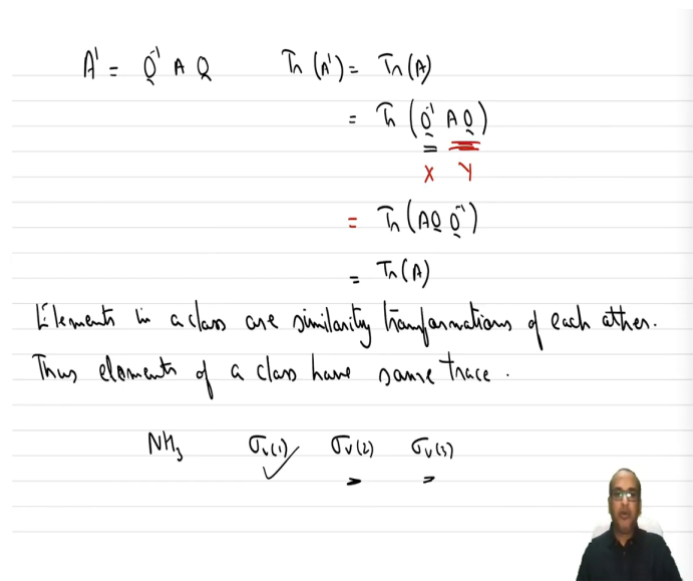 A' = Q⁻¹ A Q    Tr (A') = Tr (A)
= Tr (Q⁻¹ A Q)
X Y
= Tr (AQ Q⁻¹)
= Tr (A)
Elements in a class are similarity transformations of each other.
Thus elements of a class have same trace.
NH₃    σᵥ(1) ✓    σᵥ(2)    σᵥ(3)